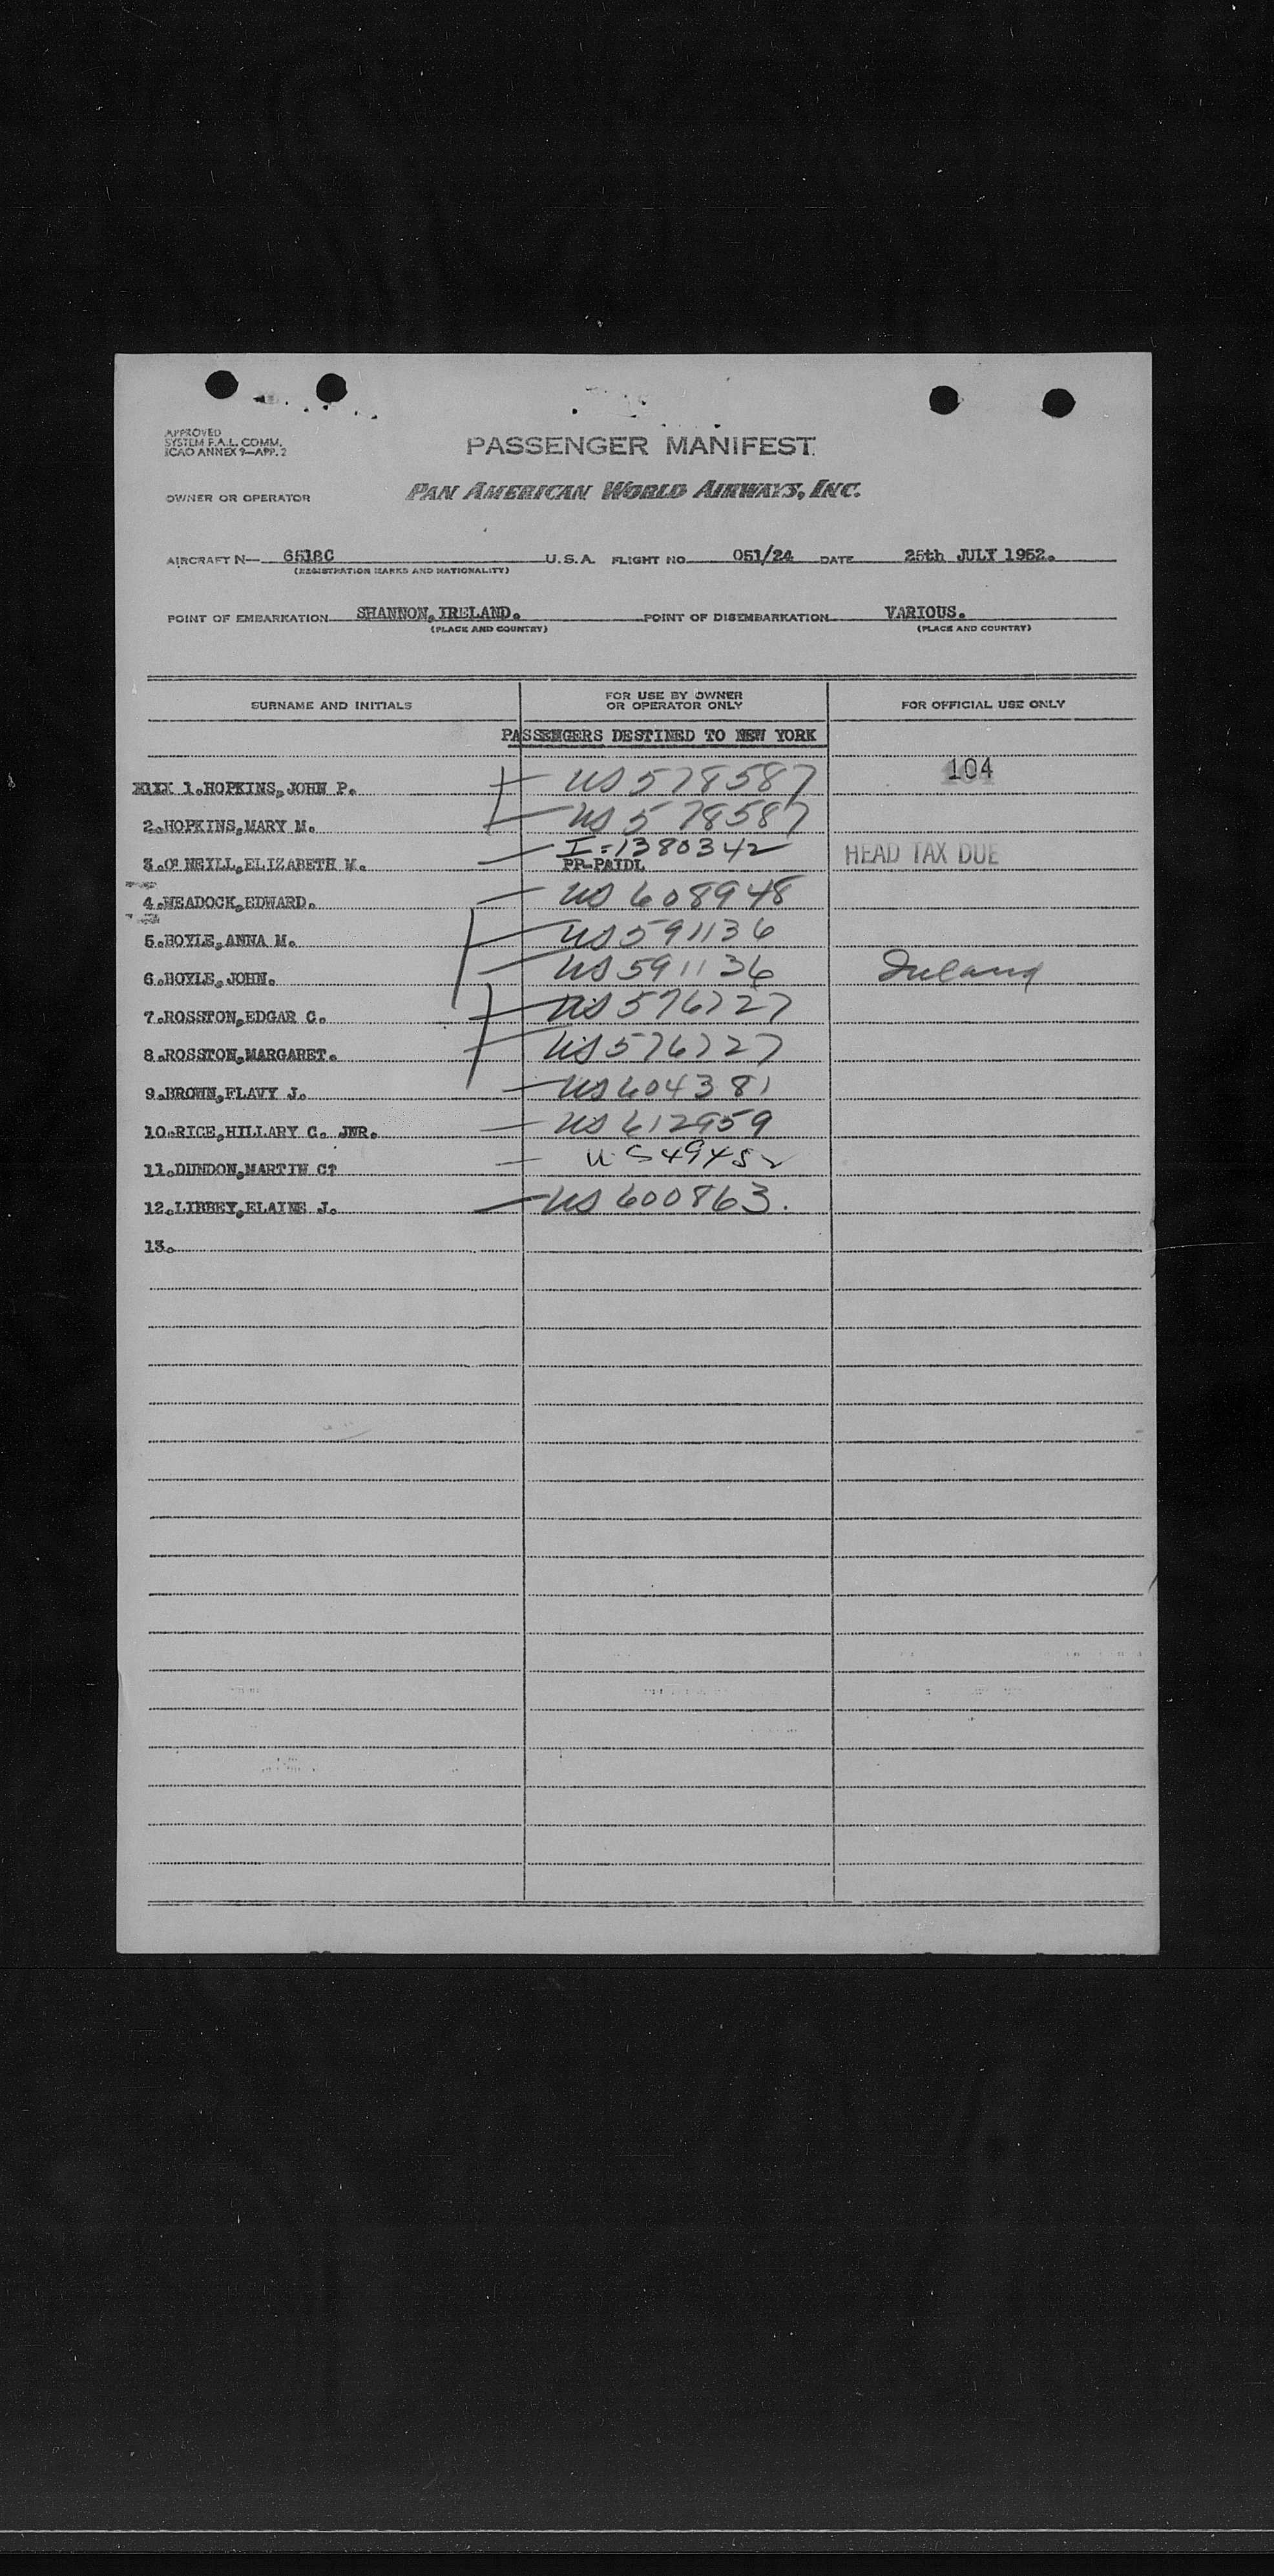 APPROVED
SYSTEM F.A.L. COMM.
ICAO ANNEX 9—APP. 2
PASSENGER MANIFEST
OWNER OR OPERATOR PAN AMERICAN WORLD AIRWAYS, INC.
AIRCRAFT N— 6518C U.S.A. FLIGHT NO. 051/24 DATE 25th JULY 1952.
(REGISTRATION MARKS AND NATIONALITY)
POINT OF EMBARKATION SHANNON,IRELAND. POINT OF DISEMBARKATION VARIOUS.
(PLACE AND COUNTRY) (PLACE AND COUNTRY)
SURNAME AND INITIALS FOR USE BY OWNER OR OPERATOR ONLY FOR OFFICIAL USE ONLY
PASSENGERS DESTINED TO NEW YORK
1.HOPKINS,JOHN P. US 578587 104
2.HOPKINS,MARY M. US 578587
3.O'NEILL,ELIZABETH M. I-1380342 HEAD TAX DUE
PP-PAIDL
4.MEADOCK,EDWARD. US 608948
5.BOYLE,ANNA M. US 591136
6.BOYLE,JOHN. US 591136 Ireland
7.ROSSTON,EDGAR C. US 576727
8.ROSSTON,MARGARET. US 576727
9.BROWN,FLAVY J. US 604381
10.RICE,HILLARY C. JNR. US 612959
11.DUNDON,MARTIN C† US 49452
12.LIBBEY,ELAINE J. US 600863.
13.